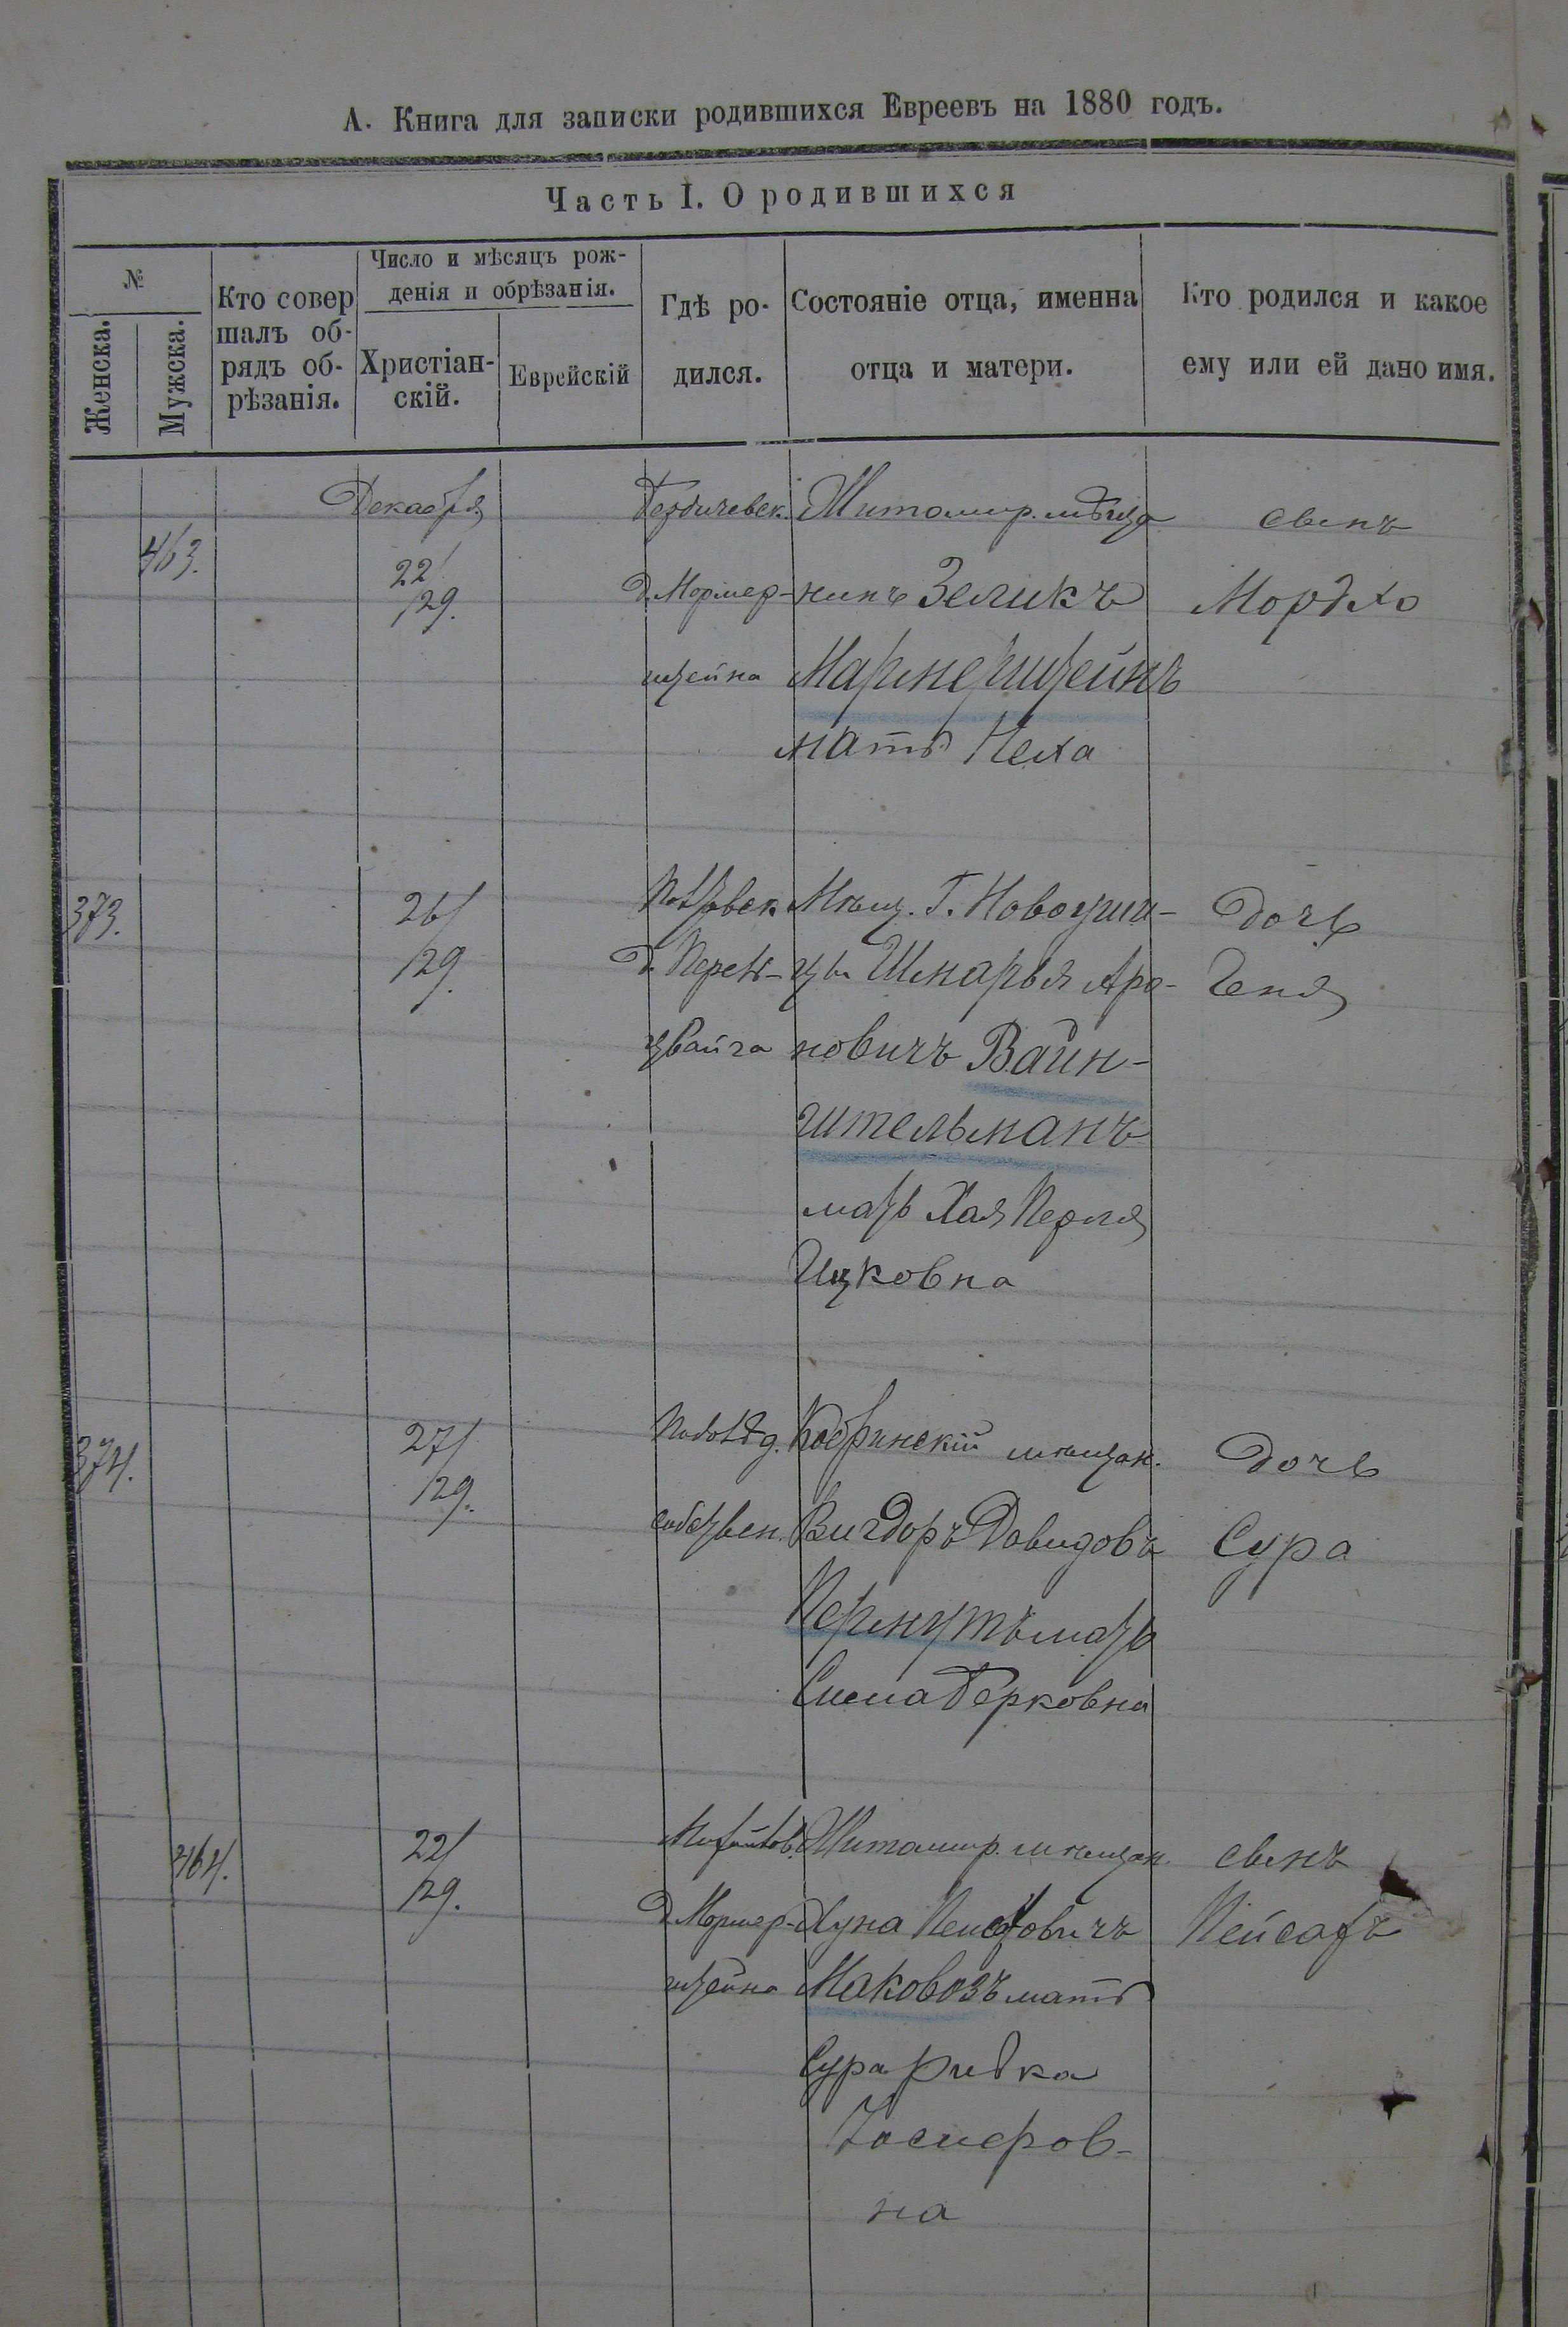 А. Книга для записки родившихся Евреевъ на 1880 годъ.
Часть I. О родившихся
№
Женска.
Мужска.
Кто совер
шалъ об-
рядъ об-
рѣзанія.
Число и мѣсяцъ рож-
денія и обрѣзанія.
Христіан-
скій.
Еврейскій
Гдѣ ро-
дился.
Состояніе отца, именна
отца и матери.
Кто родился и какое
ему или ей дано имя.
463.
Декабря
22/
/29.
Бердичевск.
д. Мормер-
штейна
Житомир. мѣща
нинъ Зеликъ
Мармерштейнъ
мать Неха
сынъ
Мордхо
373.
26/
/29.
д. Перец-
цвайга
Мѣщ. Г. Новоуши-
цы Шнарья Аро-
новичъ Вайн-
штельманъ
мать Хая Перля
Ицковна
дочь
Геня
374.
27/
/29.
собствен.
Кобринскій мѣщан.
Вигдоръ Давидовъ
Пермутъ мать
Сима Берковна
дочь
Сура
464.
22/
/29.
д. Мормер-
штейна
Житомир. мѣщан.
Хуна Пейсаховичъ
Маковозъ мать
Сура Ривка
Иосиеров-
на
сынъ
Пейсахъ